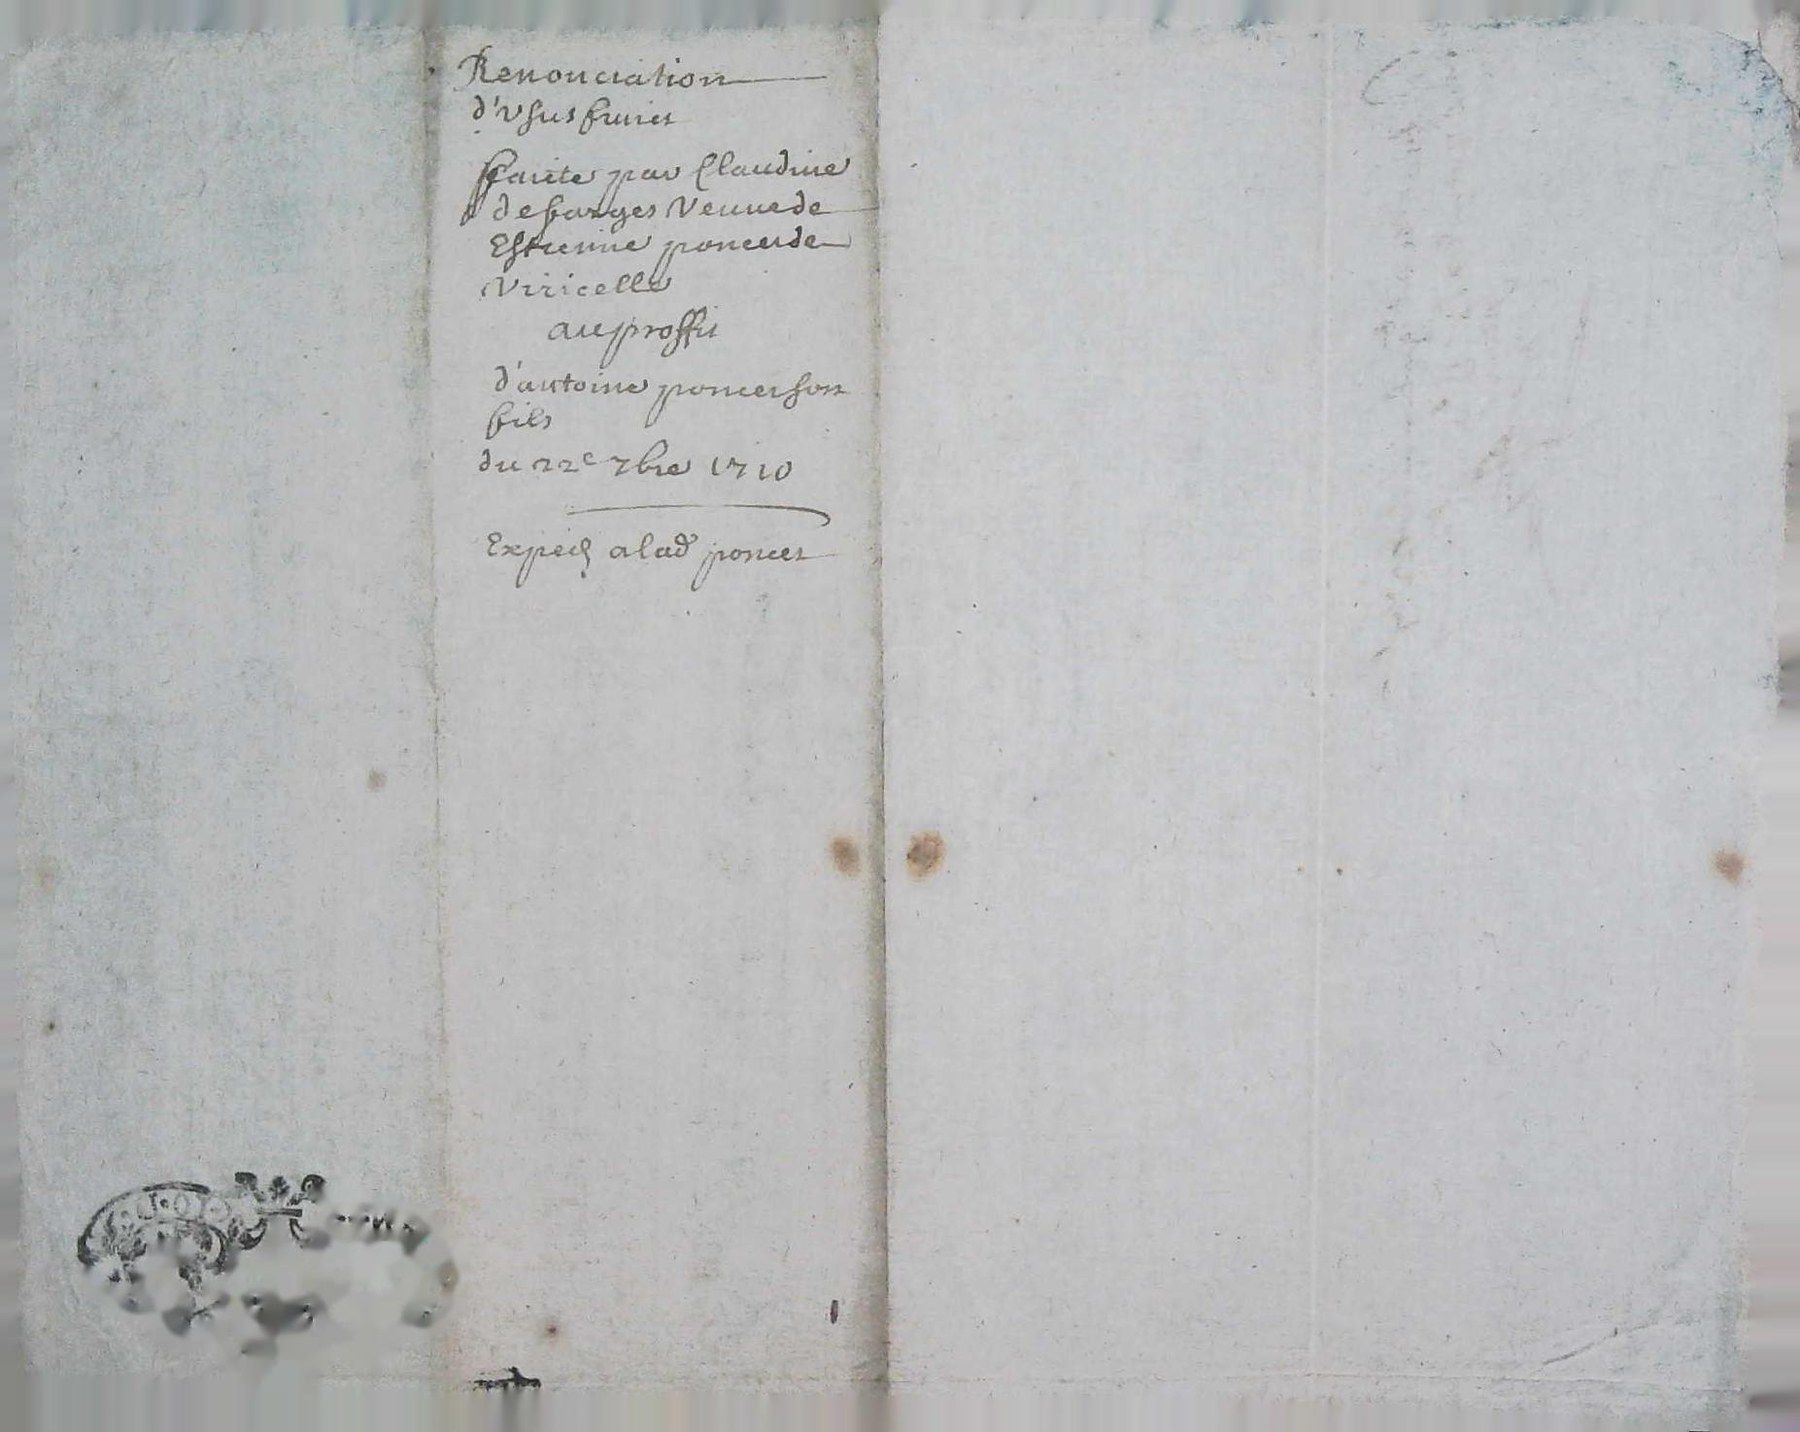 Renonciation
d'Usufruict
faicte par Claudine
defarges Veuue de
Estienne poncet de
Viricelle
au proffit
d'antoine poncet son
fils
du 22e 7bre 1710
Exped a lad poncet